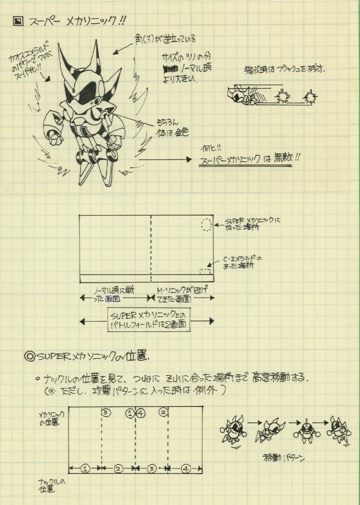 スーパー メカソニック!!
カオスエメラルド
のパワーで
スーパー化!!
角(ミミ?)が逆立っている
サイズのツノの分
ノーマル時
より大きい。
もちろん
体は金色
何と!!
スーパーメカソニックは無敵!!
SUPERメカソニックに
なった場所
C・エメラルドの
あった場所
ノーマル時に戦
った画面
M・ソニックが逃げ
てきた画面
SUPERメカソニックとの
バトルフィールドは2画面
◎SUPERメカソニックの位置.
・ナックルの位置を見て、つねに それに合った場所まで 高速移動する.
(※ ただし、攻撃パターンに入った時は例外)
メカソニック
の位置
③ ①④ ②
① ② ③ ④
ナックルの
位置
移動パターン